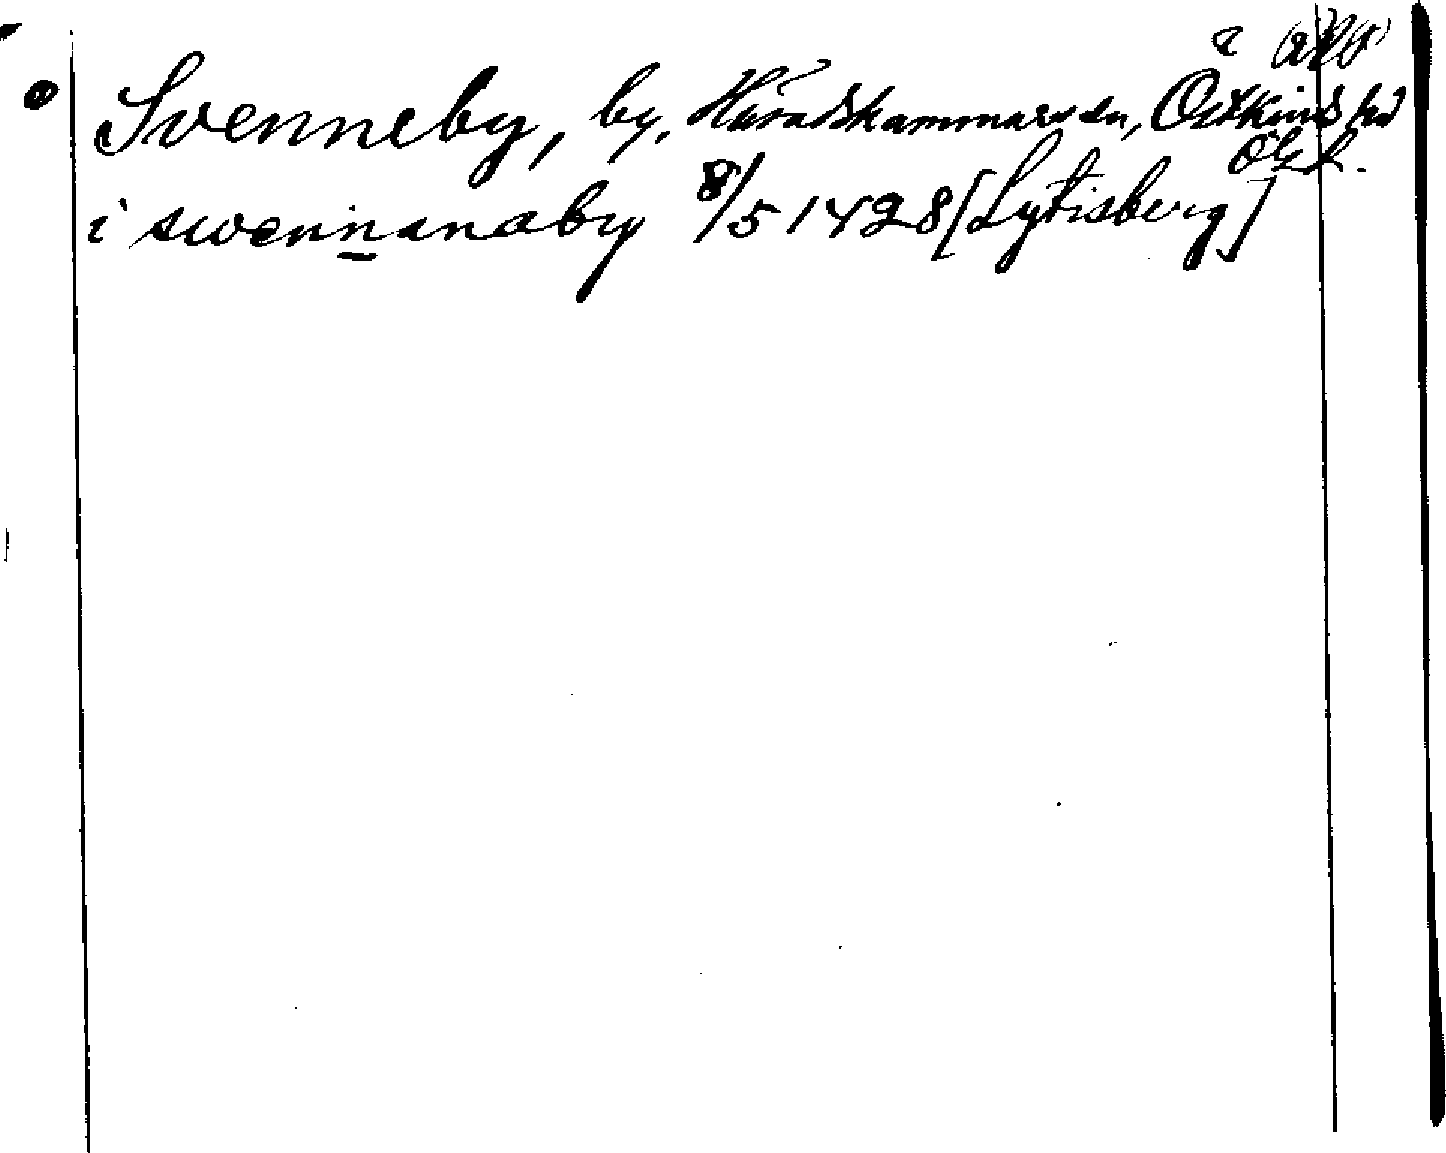 Svenneby, by, Häradshammars sn, Östkinds hd
Ög l.
i swennanaby 8/5 1428 [Lytisberg]